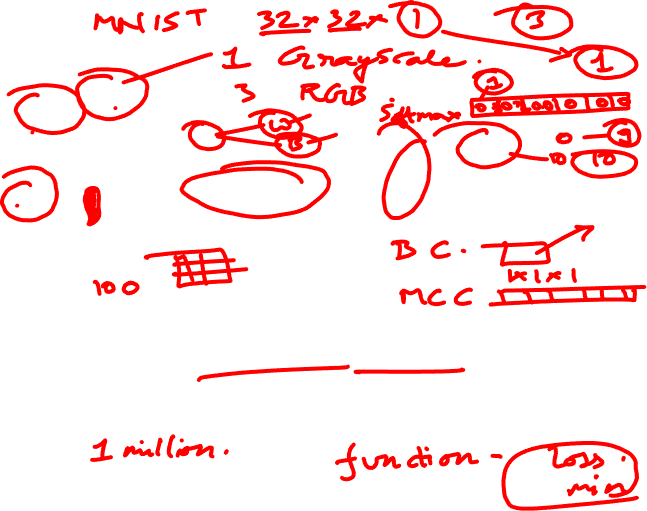 MNIST 32x32x 1 3
1 Grayscale. 1
3 RGB 1
W Softmax 0 0 0 0 0 0
B 0 9
10 10
B C.
1x1x1
100 MCC
1 million. function - Loss.
min